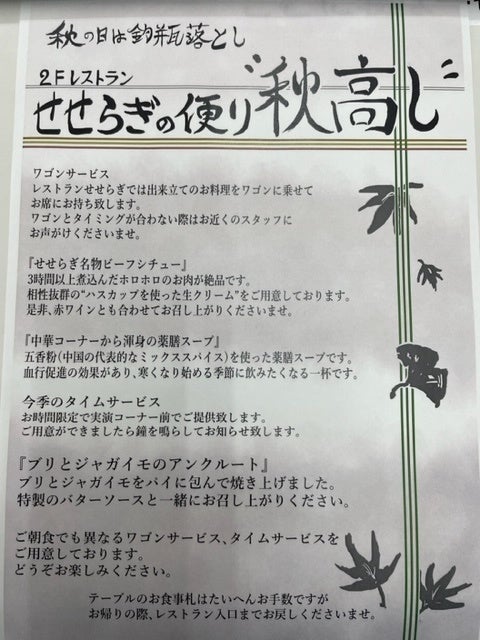 秋の日は釣瓶落とし
2Fレストラン
せせらぎの便り"秋高し"
ワゴンサービス
レストランせせらぎでは出来立てのお料理をワゴンに乗せて
お席にお持ち致します。
ワゴンとタイミングが合わない際はお近くのスタッフに
お声がけくださいませ。
『せせらぎ名物ビーフシチュー』
3時間以上煮込んだホロホロのお肉が絶品です。
相性抜群の"ハスカップを使った生クリーム"をご用意しております。
是非、赤ワインとも合わせてお召し上がりくださいませ。
『中華コーナーから渾身の薬膳スープ』
五香粉(中国の代表的なミックススパイス)を使った薬膳スープです。
血行促進の効果があり、寒くなり始める季節に飲みたくなる一杯です。
今季のタイムサービス
お時間限定で実演コーナー前でご提供致します。
ご用意ができましたら鐘を鳴らしてお知らせ致します。
『ブリとジャガイモのアンクルート』
ブリとジャガイモをパイに包んで焼き上げました。
特製のバターソースと一緒にお召し上がりください。
ご朝食でも異なるワゴンサービス、タイムサービスを
ご用意しております。
どうぞお楽しみください。
テーブルのお食事札はたいへんお手数ですが
お帰りの際、レストラン入口までお戻しくださいませ。